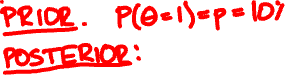 PRIOR. P(θ=1)=p=10%
POSTERIOR: